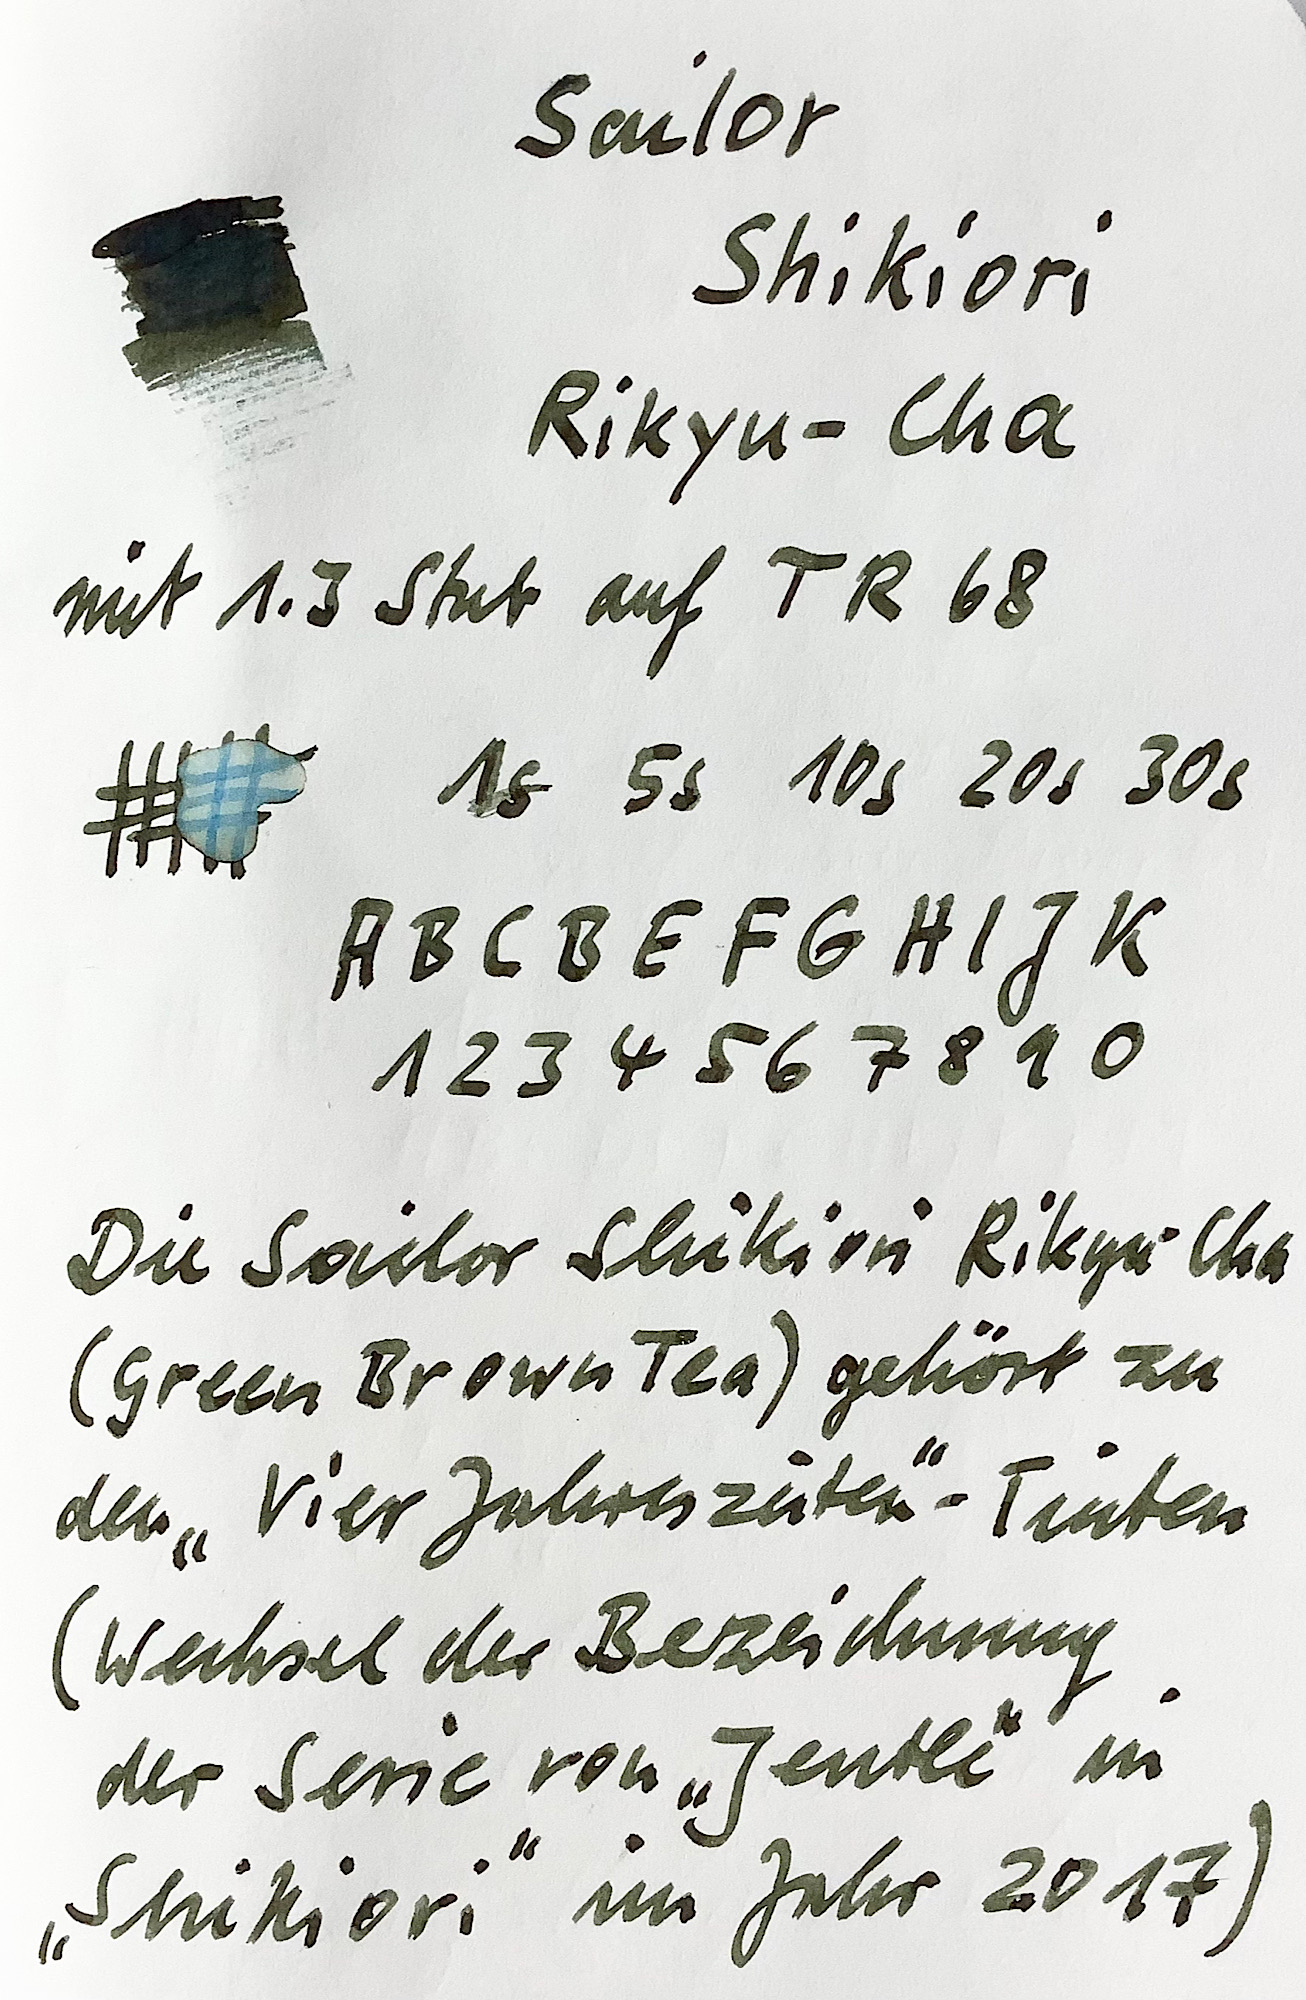 Sailor
Shikiori
Rikyu-Cha
mit 1.3 Stub auf TR 68
1s 5s 10s 20s 30s
A B C B E F G H I J K
1 2 3 4 5 6 7 8 9 0
Die Sailor Shikiori Rikyu-Cha
(Green Brown Tea) gehört zu
den „Vier Jahreszeiten“-Tinten
(Wechsel der Bezeichnung
der Serie von „Jentle“ in
„Shikiori“ im Jahr 2017)